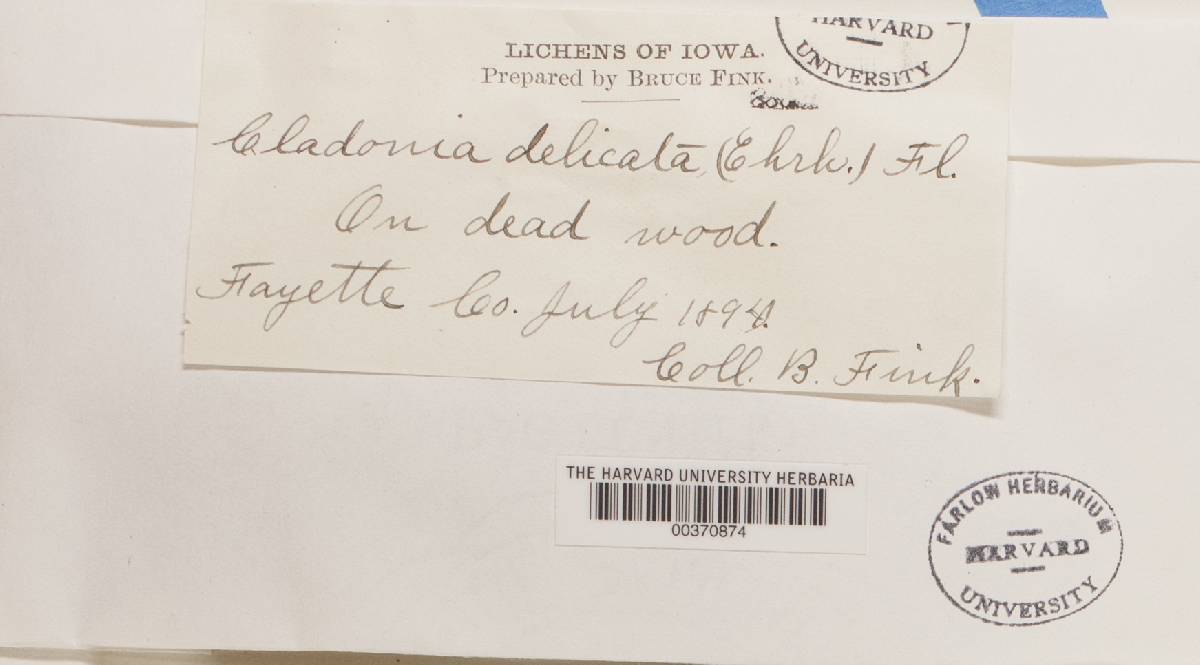 HARVARD
UNIVERSITY
LICHENS OF IOWA.
Prepared by BRUCE FINK.
Cladonia delicata, (Ehrh.) Fl.
On dead wood.
Fayette Co. July 1894.
Coll. B. Fink.
THE HARVARD UNIVERSITY HERBARIA
00370874
FARLOW HERBARIUM
HARVARD
UNIVERSITY